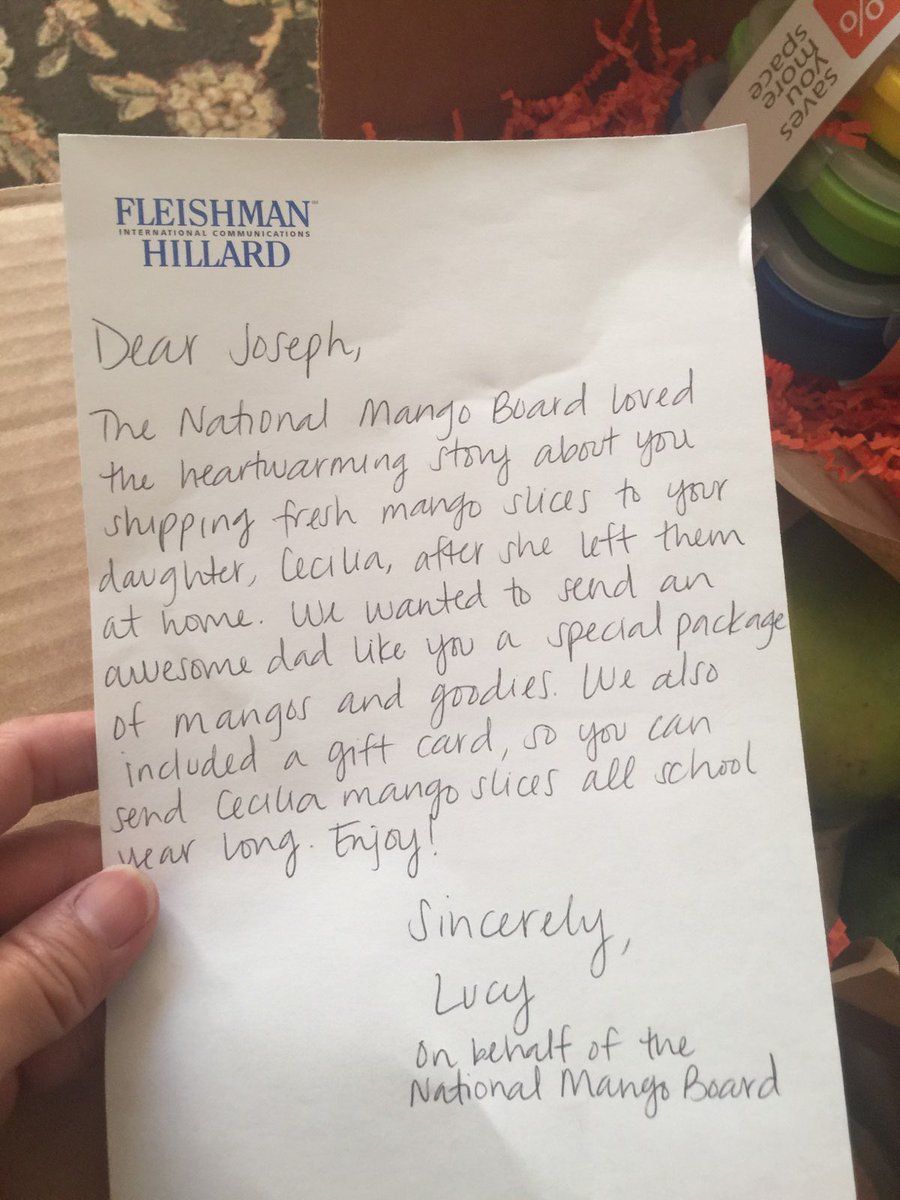 %
saves
you
more
space
FLEISHMAN
INTERNATIONAL COMMUNICATIONS
HILLARD
Dear Joseph,
The National Mango Board loved
the heartwarming story about you
shipping fresh mango slices to your
daughter, Cecilia, after she left them
at home. We wanted to send an
awesome dad like you a special package
of mangos and goodies. We also
included a gift card, so you can
send Cecilia mango slices all school
year long. Enjoy!
Sincerely,
Lucy
on behalf of the
National Mango Board